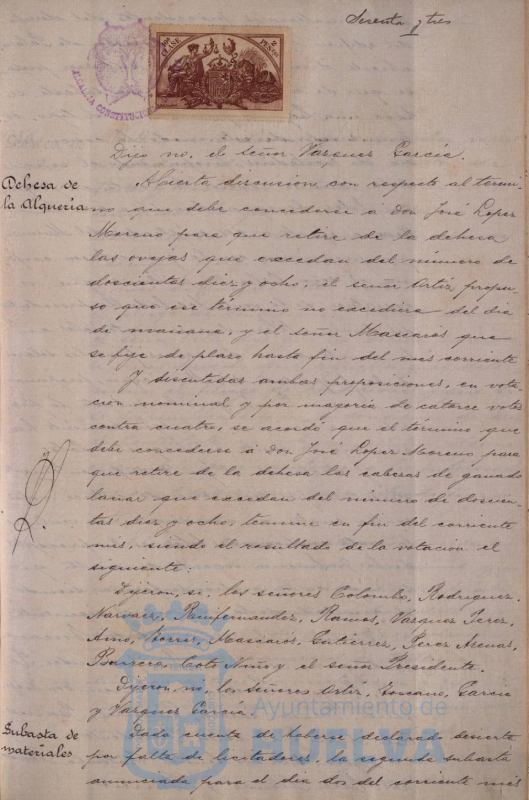 Sesenta y tres
10ª CLASE
2 PESETAS
ALCALDIA CONSTITUCIO
Dijo no, el señor Vazquez Garcia.
Dehesa de la Alquería
Abierta discusion con respecto al termi
no que debe concederse a Don José Lopez
Moreno para que retire de la dehesa
las ovejas que excedan del número de
doscientas diez y ocho, el señor Ortiz propu
so que ese término no excediera del dia
de mañana, y el señor Mascarós que
se fije de plazo hasta fin del mes corriente
Y discutidas ambas proposiciones, en vota
cion nominal y por mayoría de catorce votos
contra cuatro, se acordó que el término que
debe concederse á Don José Lopez Moreno para
que retire de la dehesa las cabezas de ganado
lanar que excedan del número de doscien
tas diez y ocho, termine en fin del corriente
mes, siendo el resultado de la votacion el
siguiente:
Dijeron, si, los señores Colombo, Rodriguez,
Narvaez, Ramos, Vazquez Perez,
Mascarós, Gutiérrez, Perez
Barrero, Coto Niño y el señor Presidente.
Dijeron, no, los señores Ortiz, Toscano, Garcia
y Vazquez Garcia.
Subasta de materiales
Dada cuenta de haberse declarado desierta
por falta de licitadores, la segunda subasta
anunciada para el dia dos del corriente mes
Ayuntamiento de
HUELVA